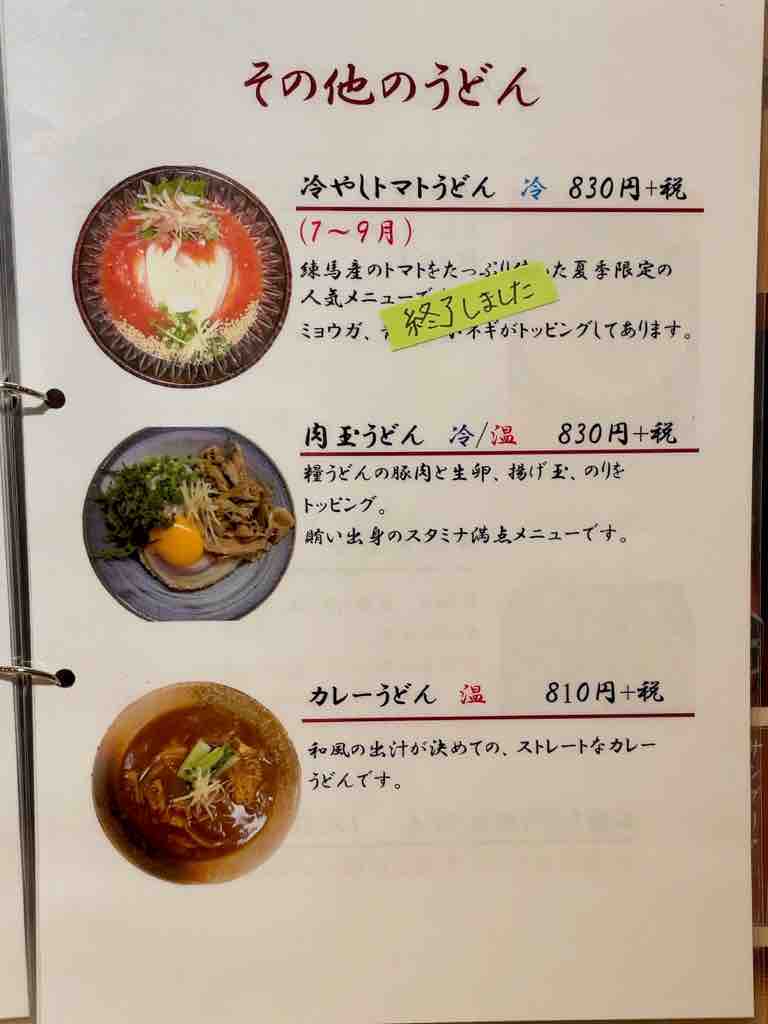 その他のうどん
冷やしトマトうどん 冷 830円+税
(7～9月)
練馬産のトマトをたっぷり た夏季限定の
人気メニューで
終了しました
ミョウガ、 ネギがトッピングしてあります。
肉玉うどん 冷/温 830円+税
糧うどんの豚肉と生卵、揚げ玉、のりを
トッピング。
賄い出身のスタミナ満点メニューです。
カレーうどん 温 810円+税
和風の出汁が決めての、ストレートなカレー
うどんです。